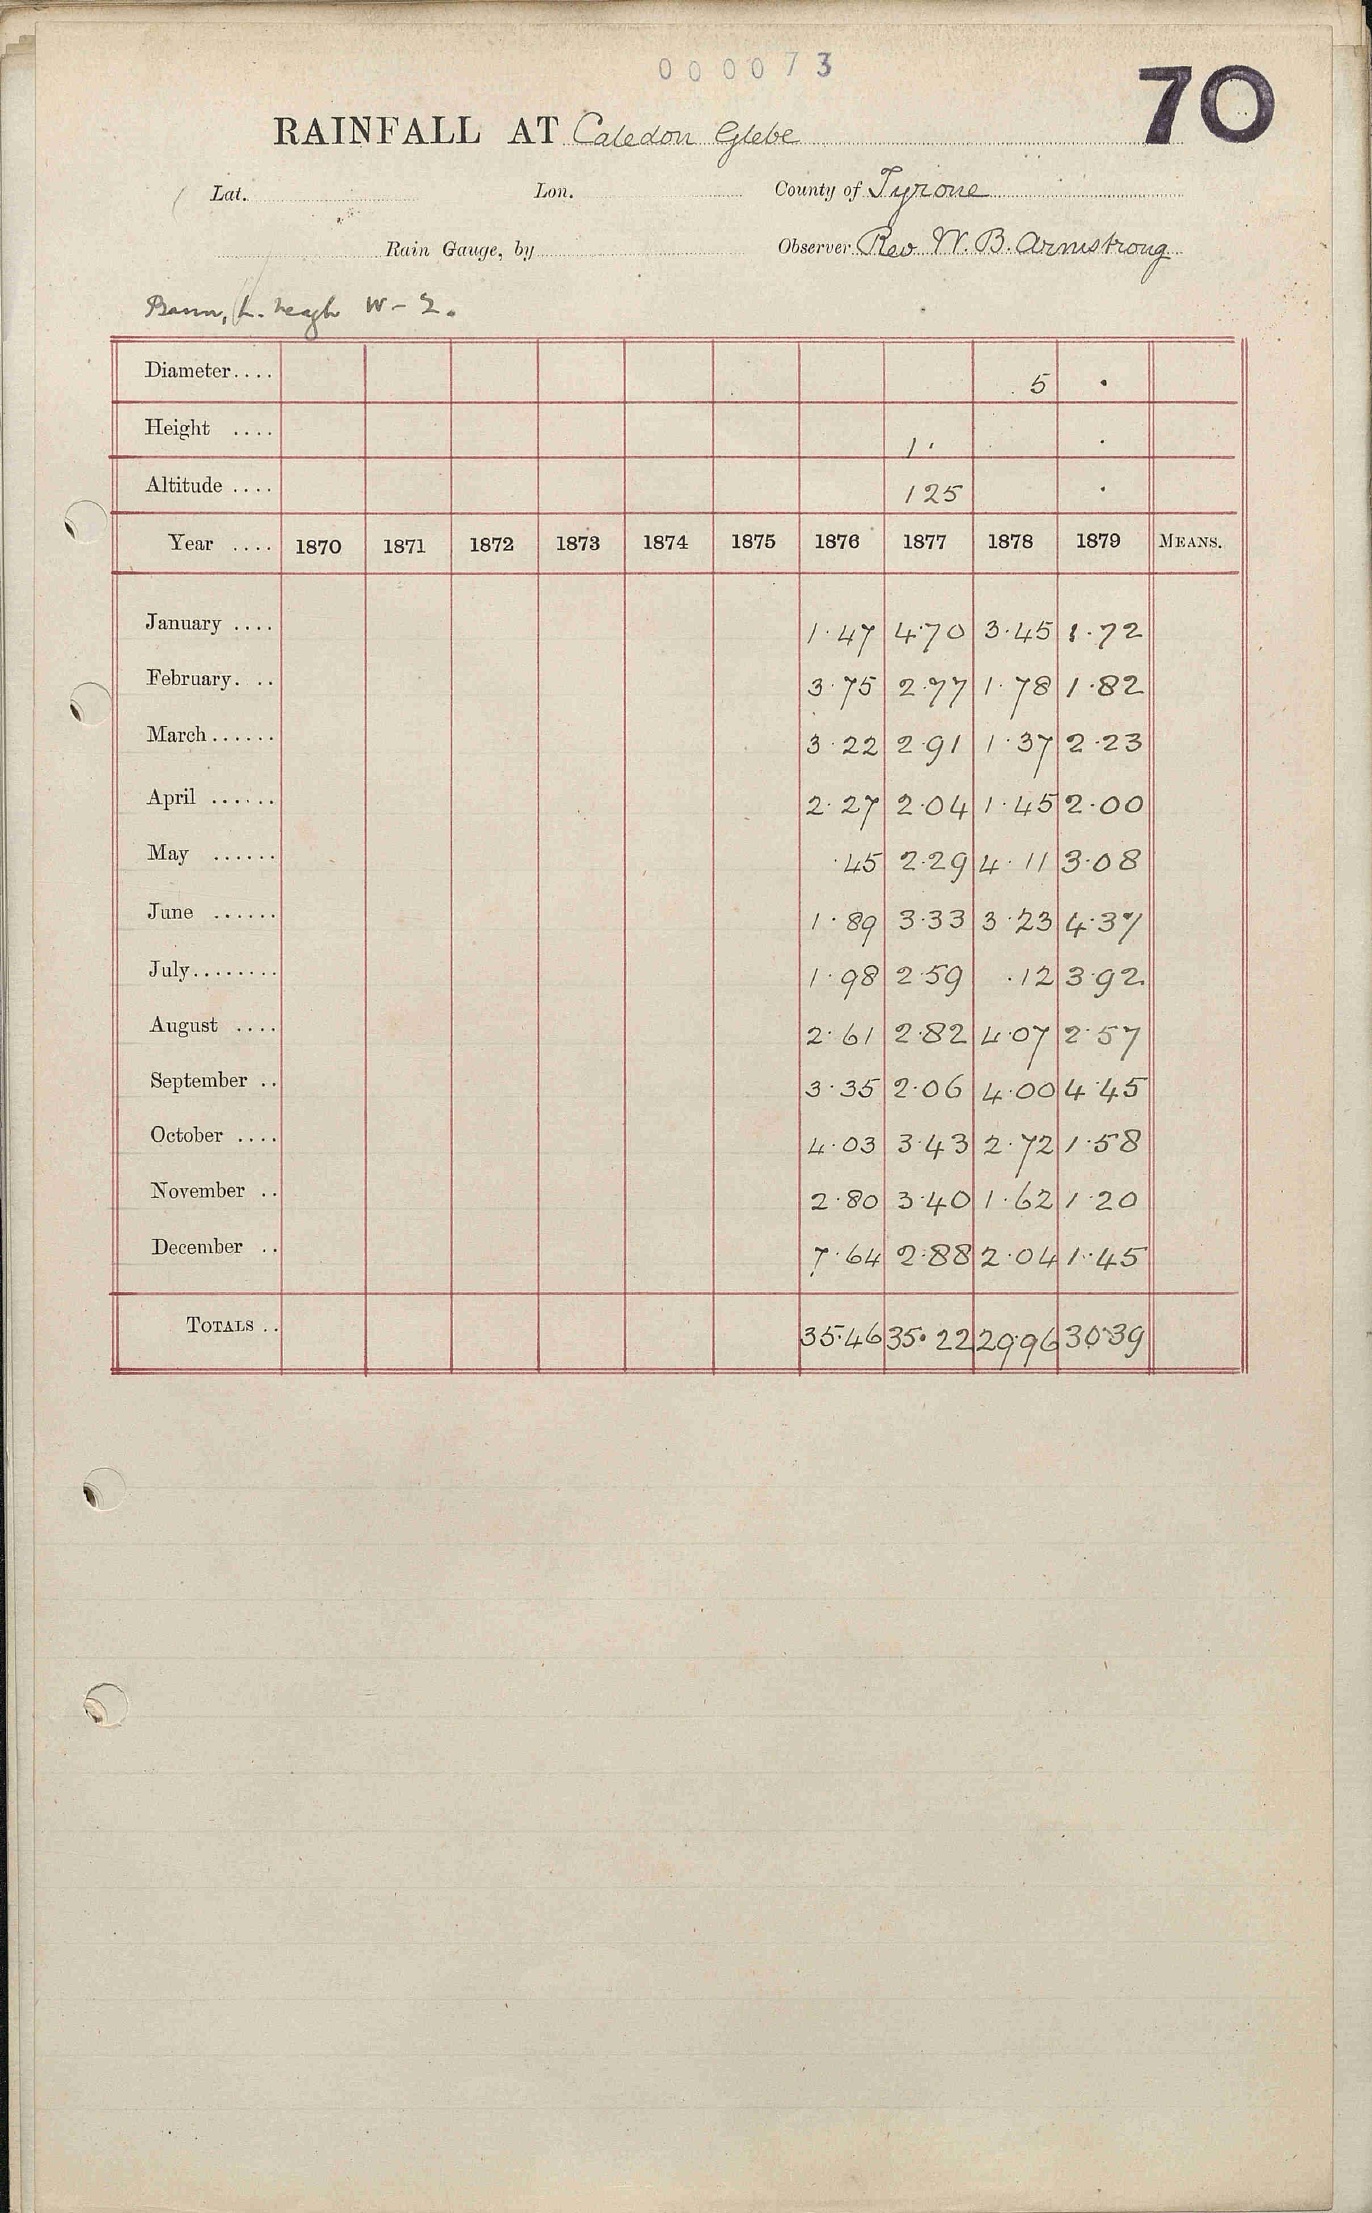 000073
70
RAINFALL AT Caledon Glebe
Lat. Lon. County of Tyrone
Rain Gauge, by Observer Rev W. B. Armstrong
Bann, L. Neagh W - 2.
Diameter.... 5 .
Height .... 1. .
Altitude .... 125 .
Year .... 1870 1871 1872 1873 1874 1875 1876 1877 1878 1879 MEANS.
January .... 1.47 4.70 3.45 1.72
February. .. 3.75 2.77 1.78 1.82
March...... 3.22 2.91 1.37 2.23
April ...... 2.27 2.04 1.45 2.00
May ...... .45 2.29 4.11 3.08
June ...... 1.89 3.33 3.23 4.37
July........ 1.98 2.59 .12 3.92
August .... 2.61 2.82 4.07 2.57
September .. 3.35 2.06 4.00 4.45
October .... 4.03 3.43 2.72 1.58
November .. 2.80 3.40 1.62 1.20
December .. 7.64 2.88 2.04 1.45
TOTALS .. 35.46 35.22 29.96 30.39